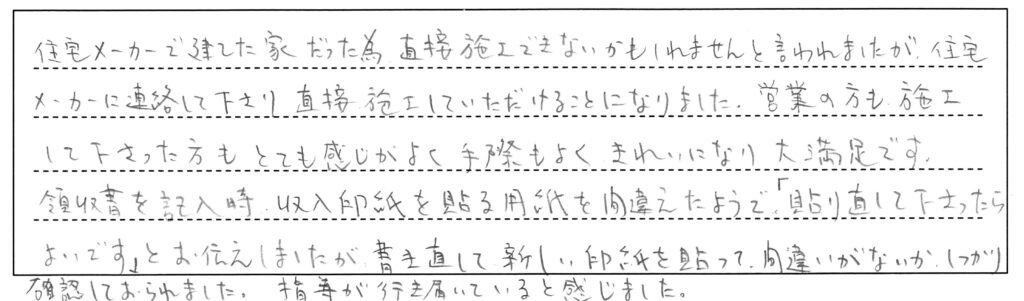 住宅メーカーで建てた家だった為、直接施工できないかもしれませんと言われましたが、住宅
メーカーに連絡して下さり直接施工していただけることになりました。営業の方も、施工
して下さった方もとても感じがよく手際もよく、きれいになり大満足です。
領収書を記入時、収入印紙を貼る用紙を間違えたようで、「貼り直して下さったら
よいです」とお伝えしましたが、書き直して新しい印紙を貼って、間違いがないか、しっかり
確認しておられました。指導が行き届いていると感じました。